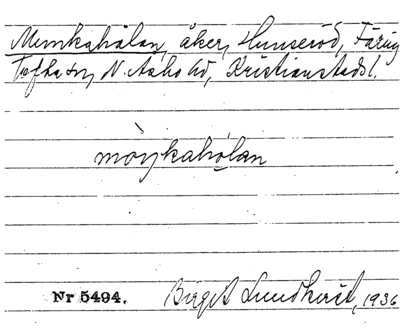 Munkahålan, åker, Hunseröd, Färing
tofta sn, N. Åsbo hd, Kristianstads l.
mòŋkahólan
Nr 5494. Birgit Lundkvist, 1936